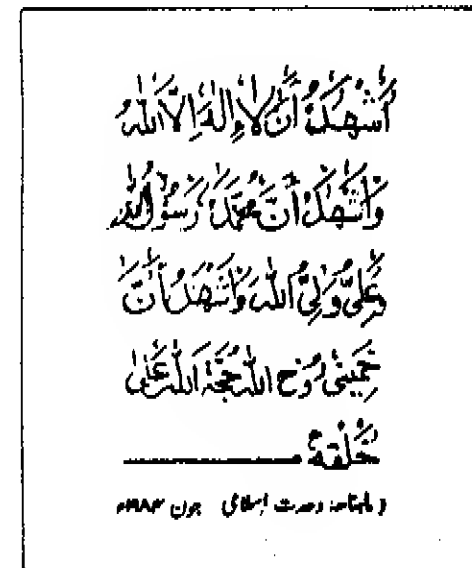 أَشْهَدُ أَنْ لَا إِلٰهَ إِلَّا اللّٰهُ
وَأَشْهَدُ أَنَّ مُحَمَّدًا رَسُوْلُ اللّٰهِ
وَعَلِيٌّ وَلِيُّ اللّٰهِ وَأَشْهَدُ أَنَّ
خُمِيْنِيْ رُوْحُ اللّٰهِ حُجَّةُ اللّٰهِ عَلٰى
خَلْقِهٖ
( ماہنامہ وحدت اسلامی جون ۱۹۸۴ء